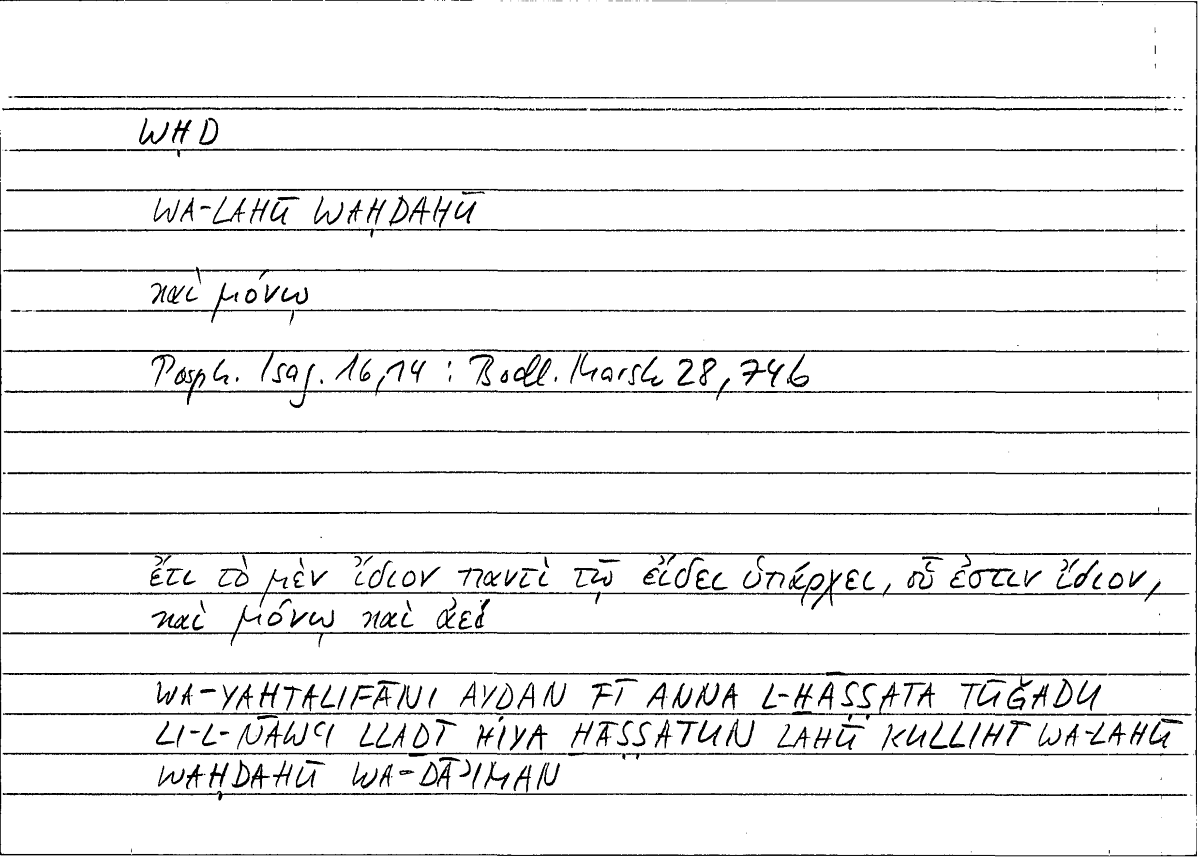 WḤD
WA-LAHŪ WAḤDAHŪ
καὶ μόνῳ
Porph. Isag. 16,14 : Bodl. Marsh 28,74b
ἔτι τὸ μὲν ἴδιον παντὶ τῷ εἴδει ὑπάρχει, οὗ ἐστιν ἴδιον,
καὶ μόνῳ καὶ ἀεί
WA-YAHTALIFĀNI AYDAN FĪ ANNA L-ḪĀṢṢATA TŪǦADU
LI-L-NAWʿI LLADĪ HIYA ḪĀṢṢATUN LAHŪ KULLIHĪ WA-LAHŪ
WAḤDAHŪ WA-DĀʾIMAN